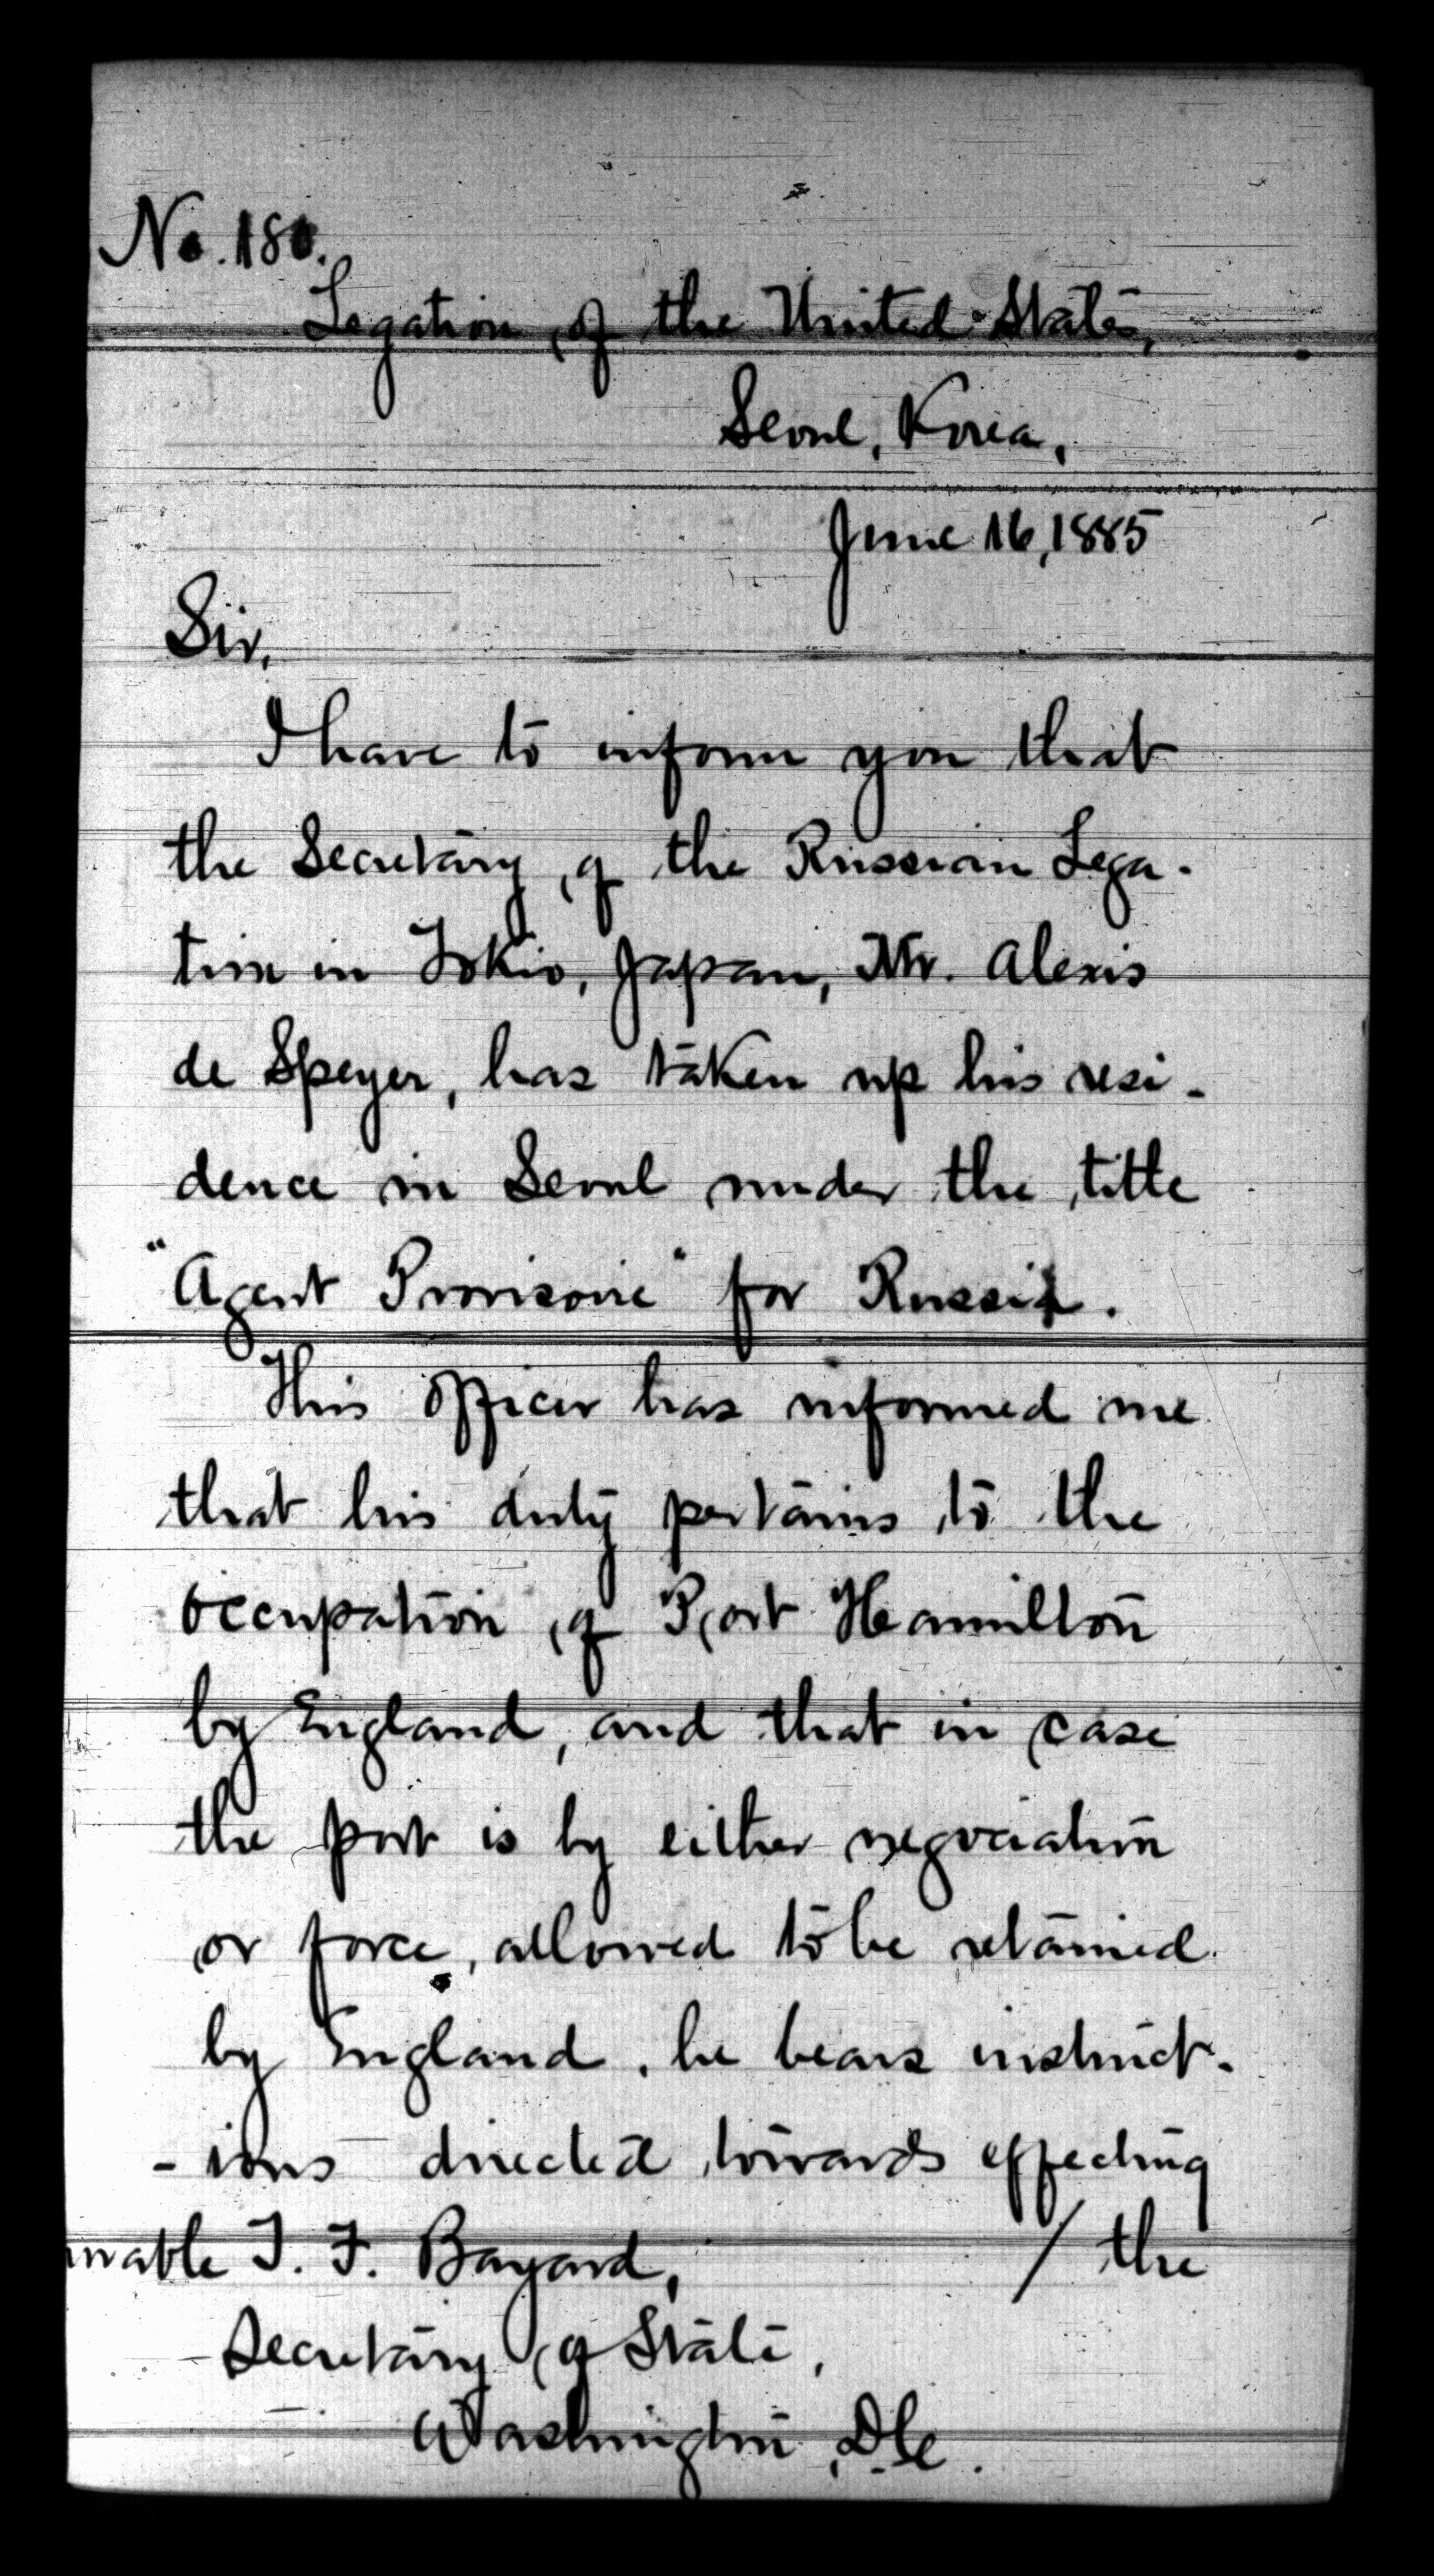 No. 180.
Legation of the United States,
Seoul, Korea,
June 16, 1885
Sir,
I have to inform you that
the Secretary of the Russian Lega-
tion in Tokio, Japan, Mr. Alexis
de Speyer, has taken up his resi-
dence in Seoul under the title
"Agent Provisoire" for Russia.
This officer has informed me
that his duty pertains to the
occupation of Port Hamilton
by England, and that in case
the port is by either negociation
or force, allowed to be retained
by England, he bears instruct-
-ions directed towards effecting
/ the
T. F. Bayard,
Secretary of State,
Washington, D.C.